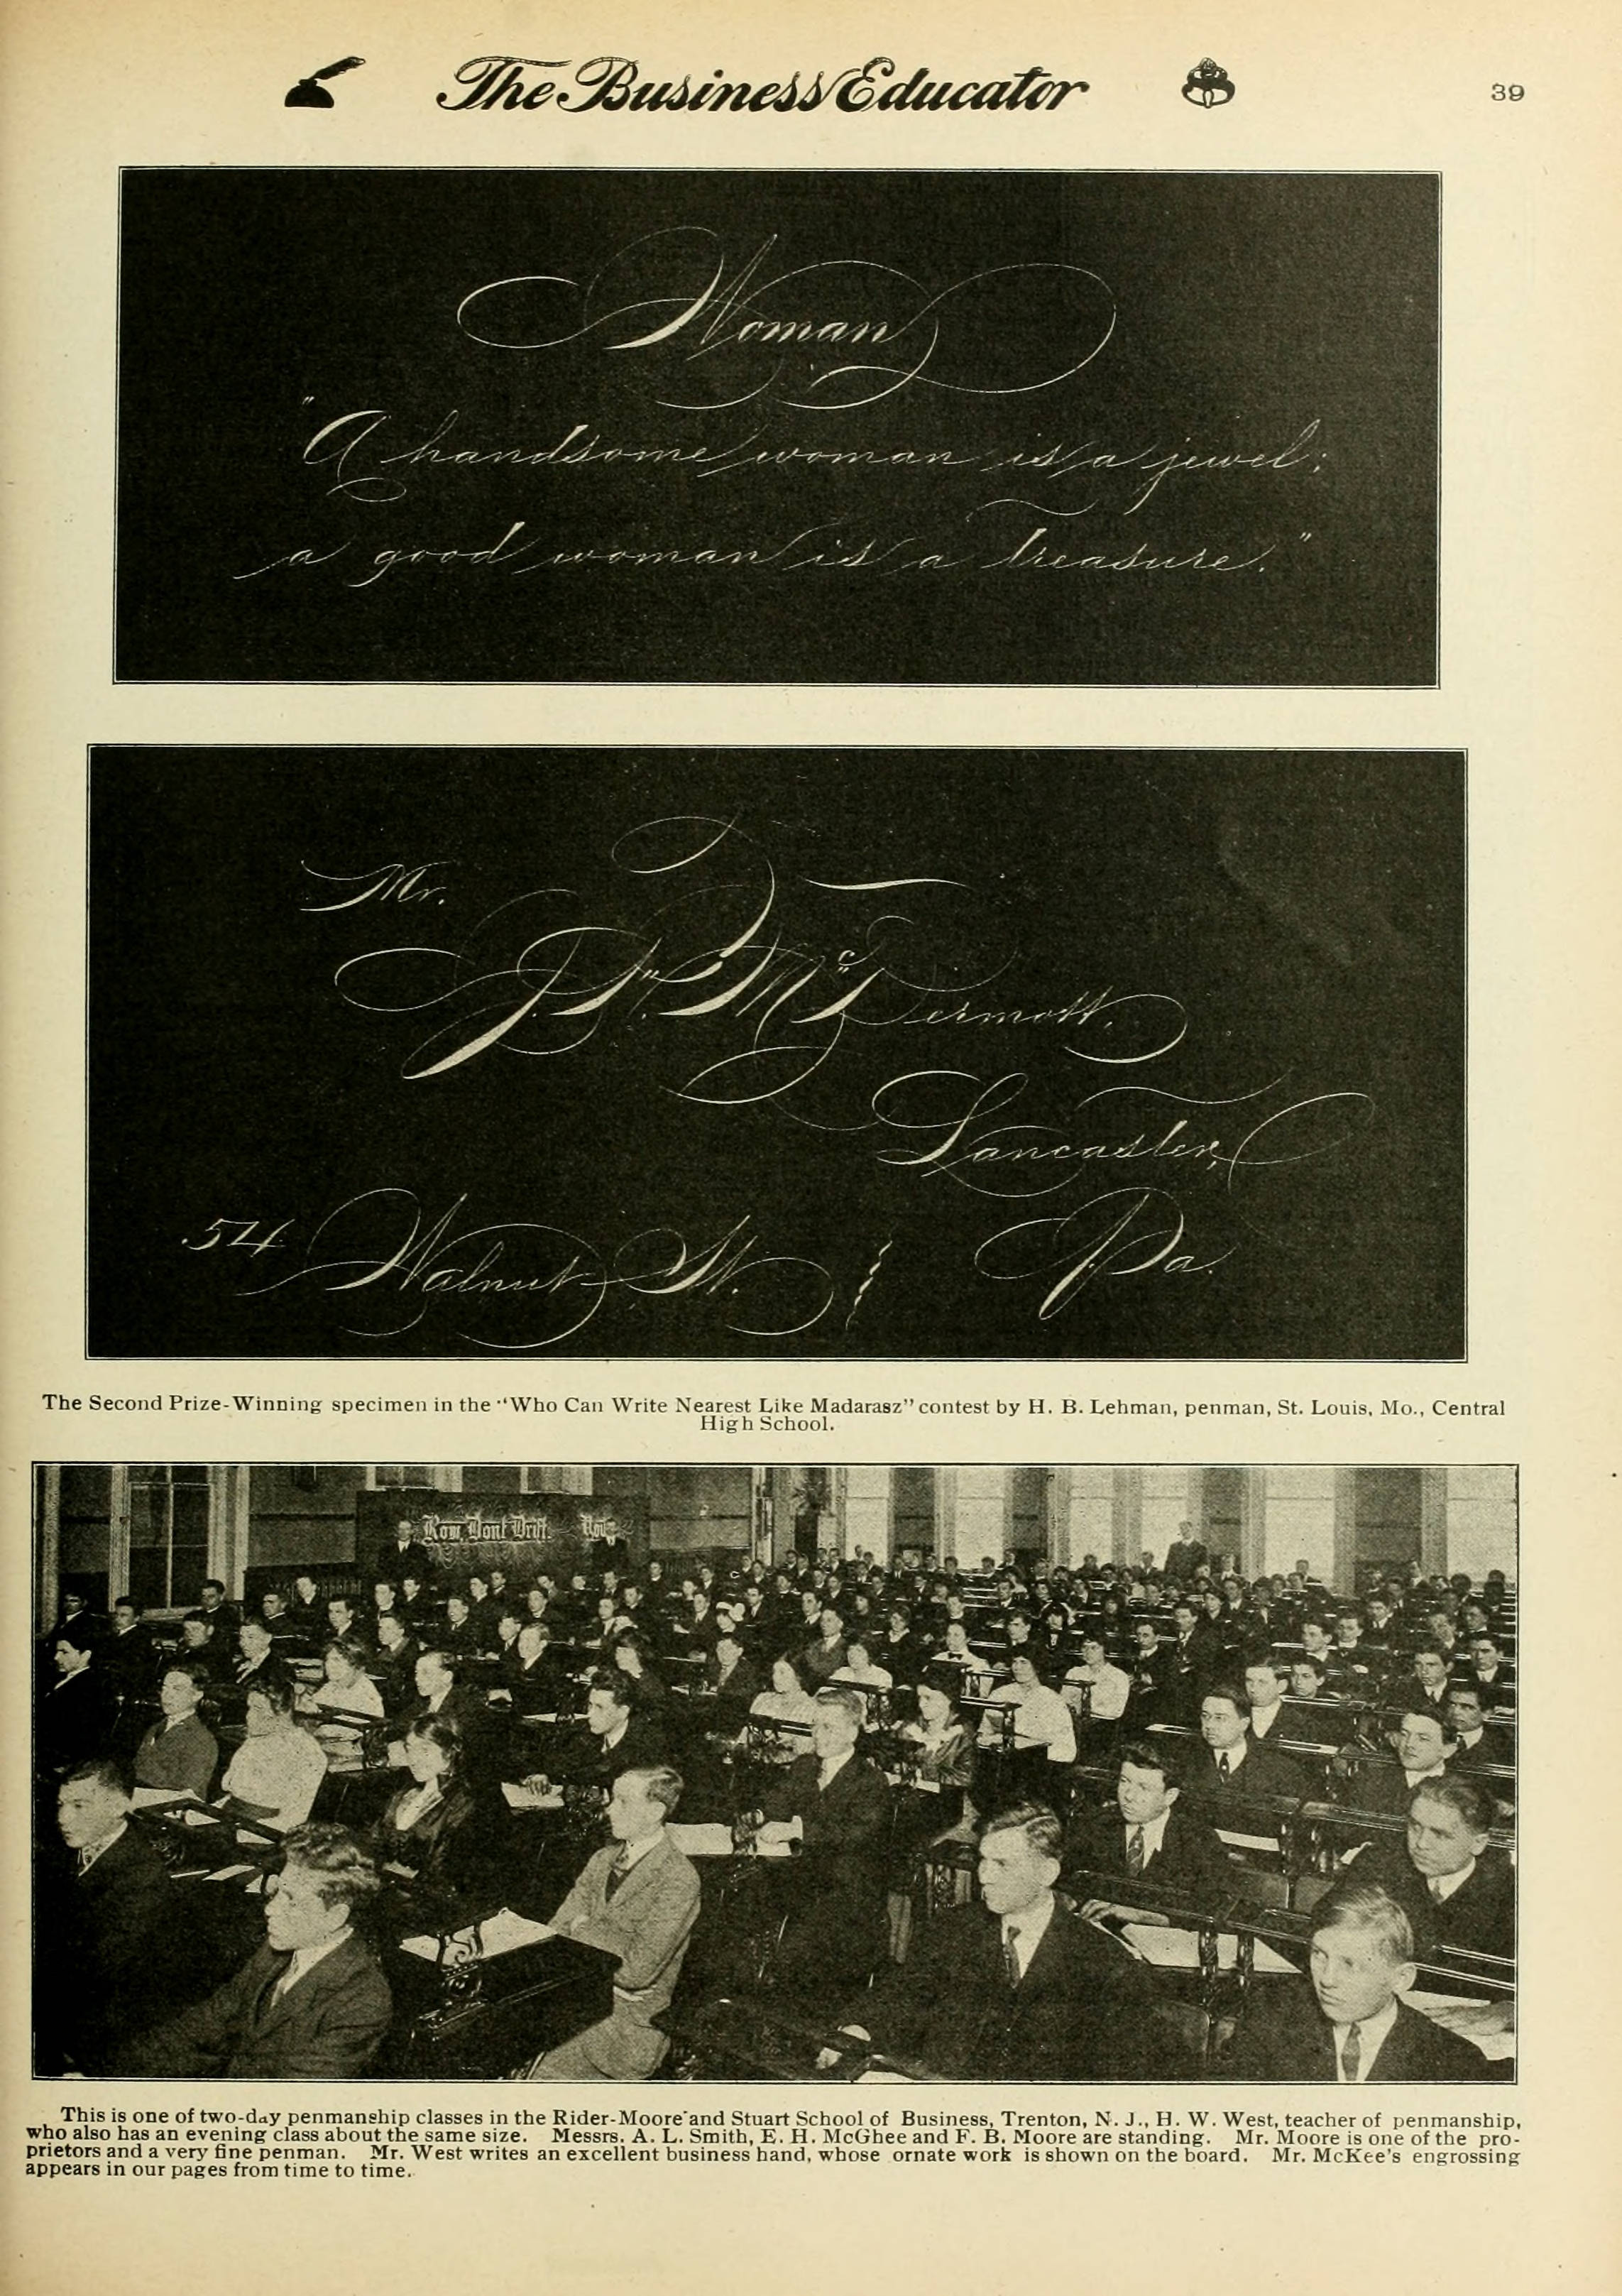 The Business Educator
39
Woman
"A handsome woman is a jewel;
a good woman is a treasure."
Mr.
J. W. Mc Dermott,
Lancaster,
54 Walnut St. Pa.
The Second Prize-Winning specimen in the "Who Can Write Nearest Like Madarasz" contest by H. B. Lehman, penman, St. Louis, Mo., Central
High School.
Row, Dont Drift. Row
This is one of two-day penmanship classes in the Rider-Moore and Stuart School of Business, Trenton, N. J., H. W. West, teacher of penmanship,
who also has an evening class about the same size. Messrs. A. L. Smith, E. H. McGhee and F. B. Moore are standing. Mr. Moore is one of the pro-
prietors and a very fine penman. Mr. West writes an excellent business hand, whose ornate work is shown on the board. Mr. McKee's engrossing
appears in our pages from time to time.